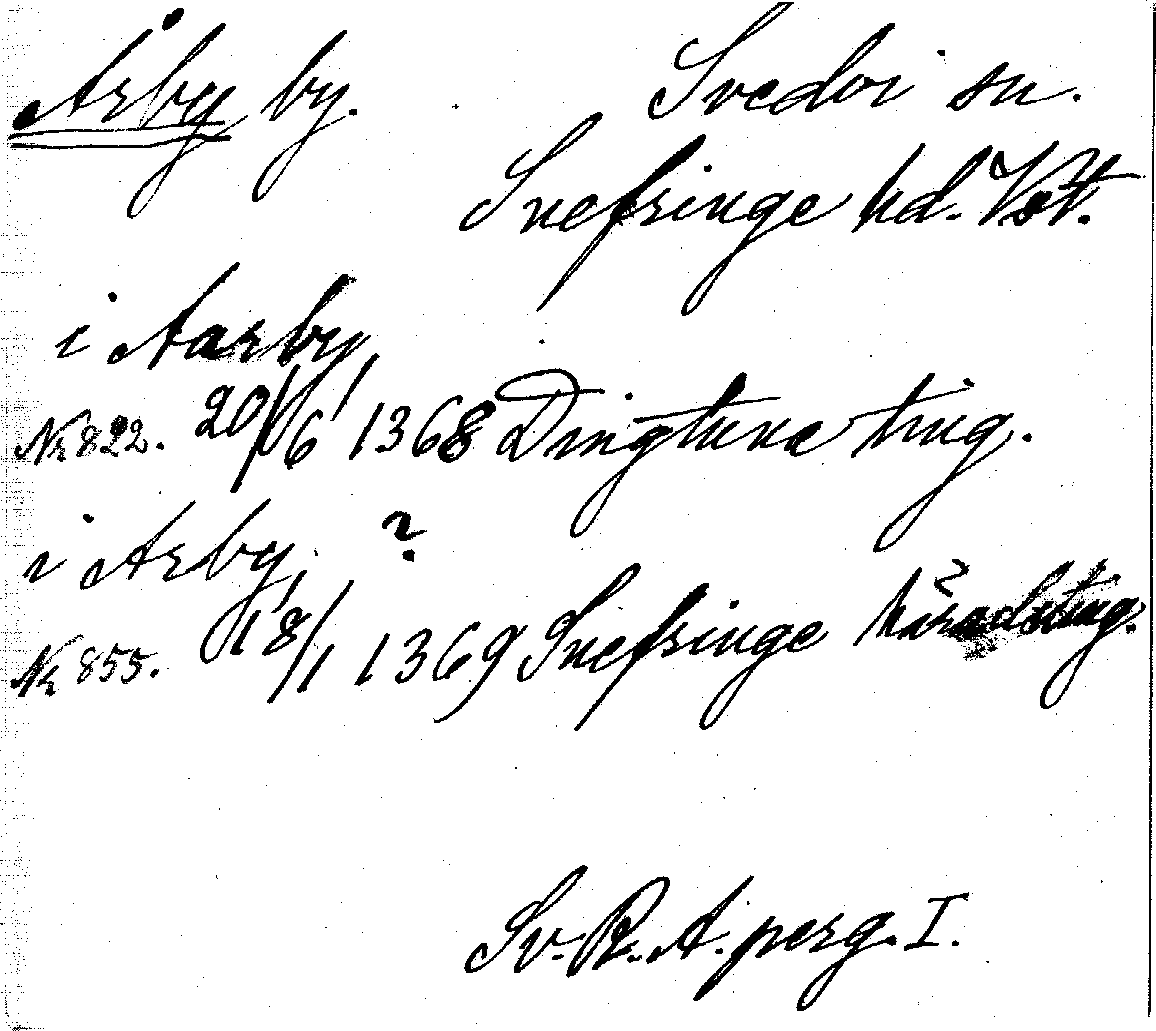 Årby by. Svedvi sn.
Snefringe hd. Vstl.
i Aarby,
Nr 822. 20/6 1368 Dingtuna ting.
i Arby, ?
Nr 855. 18/1 1369 Snefringe häradsting.
Sv. R. A. perg. I.